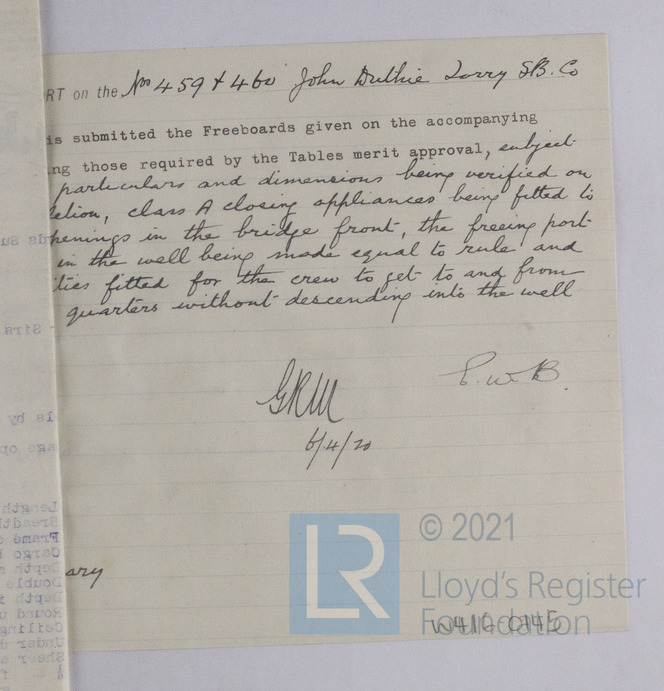 RT on the Nos 459 & 460 John Duthie Torry SB. Co
is submitted the Freeboards given on the accompanying
ng those required by the Tables merit approval, subject
particulars and dimensions being verified on
letion, class A closing appliances being fitted to
penings in the bridge front, the freeing port
in the well being made equal to rule and
ties fitted for the crew to get to and from
quarters without descending into the well
E.W.B.
GRM
6/4/20
Sirs
ls by
age op
Length
Breadth
Frame
Cargo
Depth
Double
Depth
Round
Ceiling
Under
Sheer
ary
LR
© 2021
Lloyd's Register
Foundation
W410-0145